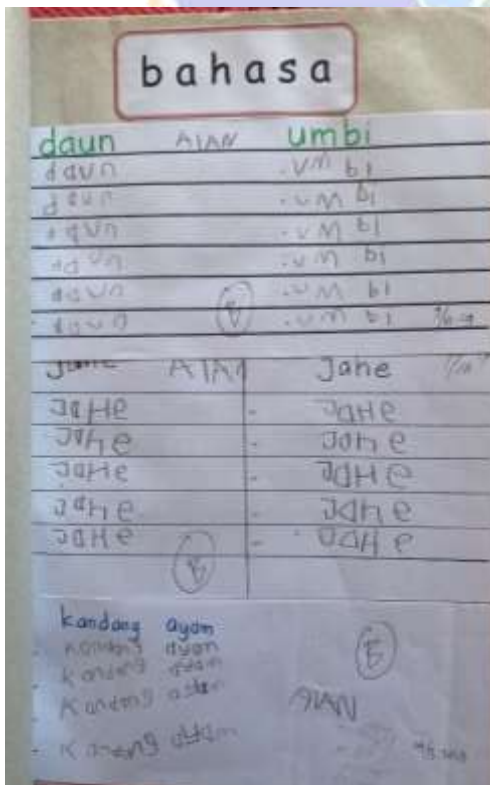 bahasa
daun AIAN umbi
daun . uM bi
daun . uM bi
daun . uM bi
daun . uM bi
daun . uM bi
daun B . uM bi
AIAN Jahe
JaHe - JaHe
JaHe - JaHe
JaHe - JaHe
JaHe - JaHe
JaHe - JaHe
B
kandang ayam
kandang ayam
kandang ayam B
Kandang
AIAN